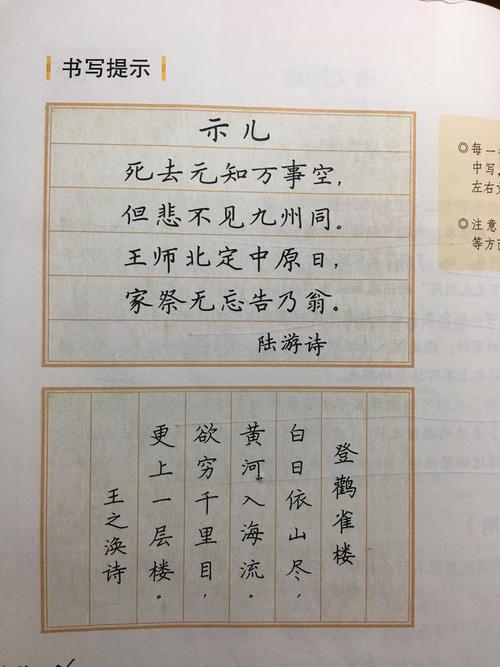 书写提示
示儿
死去元知万事空，
但悲不见九州同。
王师北定中原日，
家祭无忘告乃翁。
陆游诗
登鹳雀楼
白日依山尽，
黄河入海流。
欲穷千里目，
更上一层楼。
王之涣诗
◎每一
中写，
左右
◎注意
等方面